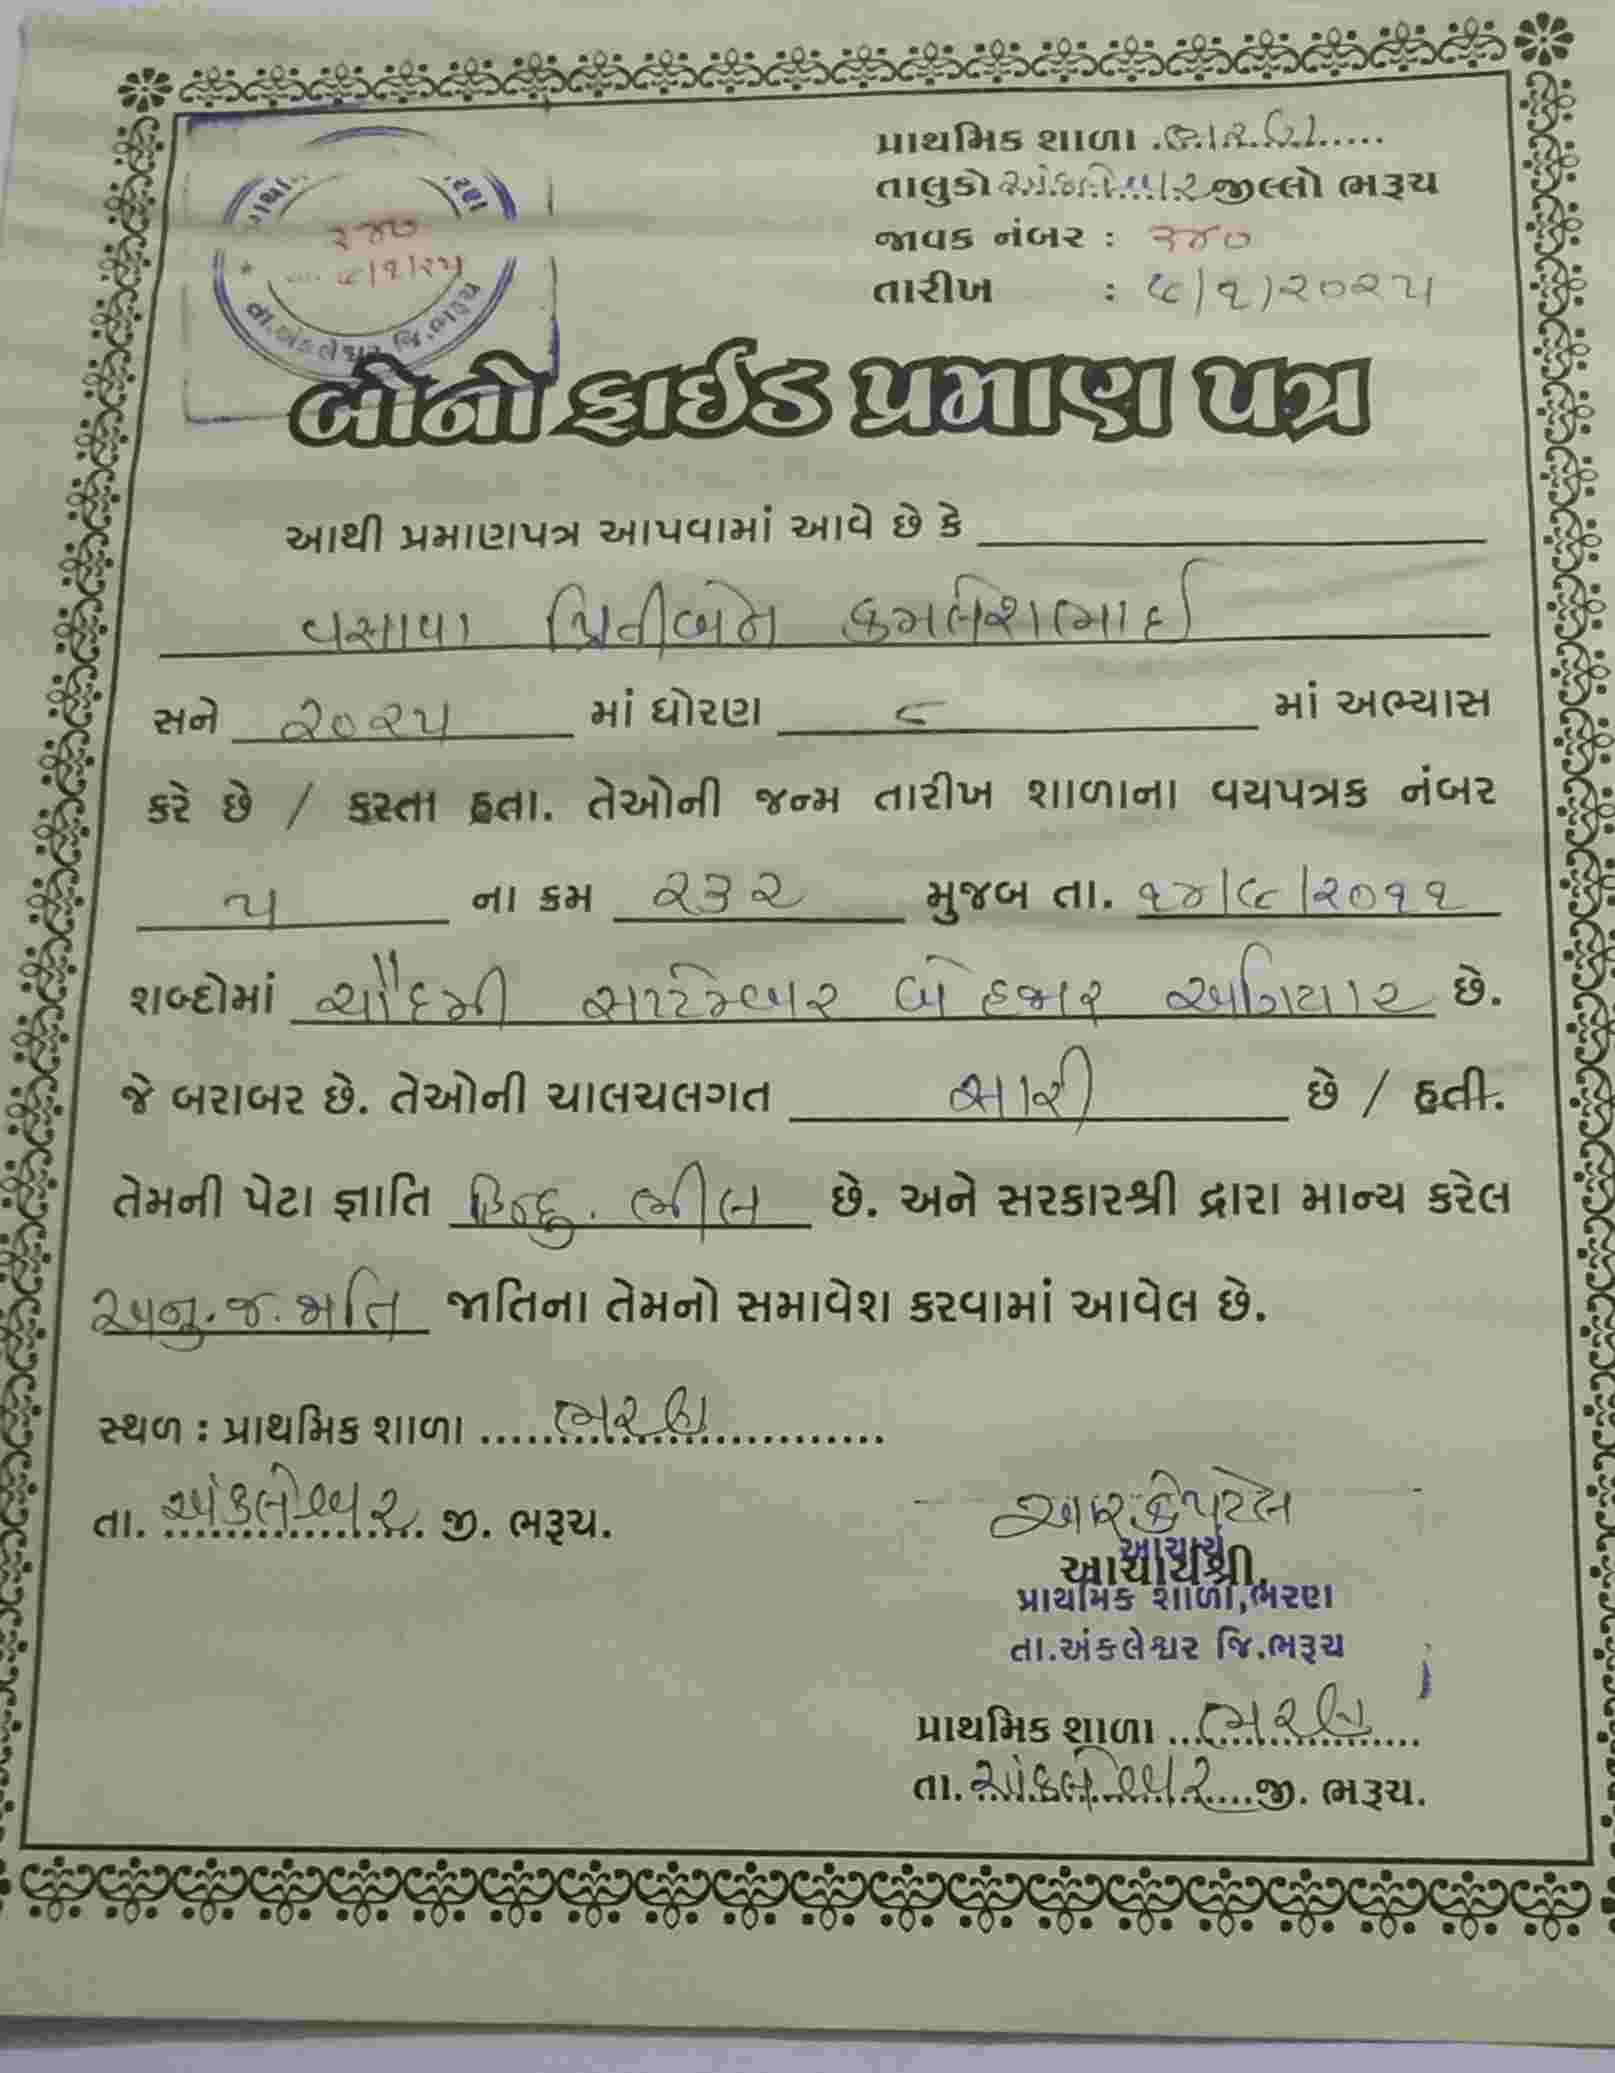 પ્રાથમિક શાળા ..ભરણ.....
તાલુકો અંકલેશ્વર જીલ્લો ભરૂચ
જાવક નંબર : ૩૪૦
તારીખ : ૯/૧/૨૦૨૫
રણ
૩૪૦
૯/૧/૨૫
તા.અંકલેશ્વર જિ.ભરૂચ
બોનોફાઈડ પ્રમાણ પત્ર
આથી પ્રમાણપત્ર આપવામાં આવે છે કે
વસાવા પ્રિતીબેન કમલેશભાઈ
સને ૨૦૨૫ માં ધોરણ ૮ માં અભ્યાસ
કરે છે / કરતા હતા. તેઓની જન્મ તારીખ શાળાના વયપત્રક નંબર
૫ ના ક્રમ ૨૩૨ મુજબ તા. ૧૪/૯/૨૦૧૧
શબ્દોમાં ચૌદમી સપ્ટેમ્બર બે હજાર અગિયાર છે.
જે બરાબર છે. તેઓની ચાલચલગત સારી છે / હતી.
તેમની પેટા જ્ઞાતિ હિન્દુ. ભીલ છે. અને સરકારશ્રી દ્વારા માન્ય કરેલ
અનુ.જ.જાતિ જાતિના તેમનો સમાવેશ કરવામાં આવેલ છે.
સ્થળ : પ્રાથમિક શાળા ....ભરણ..........
તા. અંકલેશ્વર જી. ભરૂચ.
આર.કે.પટેલ
આચાર્ય
આચાર્યશ્રી,
પ્રાથમિક શાળા,ભરણ
તા.અંકલેશ્વર જિ.ભરૂચ
પ્રાથમિક શાળા ..ભરણ....
તા. અંકલેશ્વર જી. ભરૂચ.